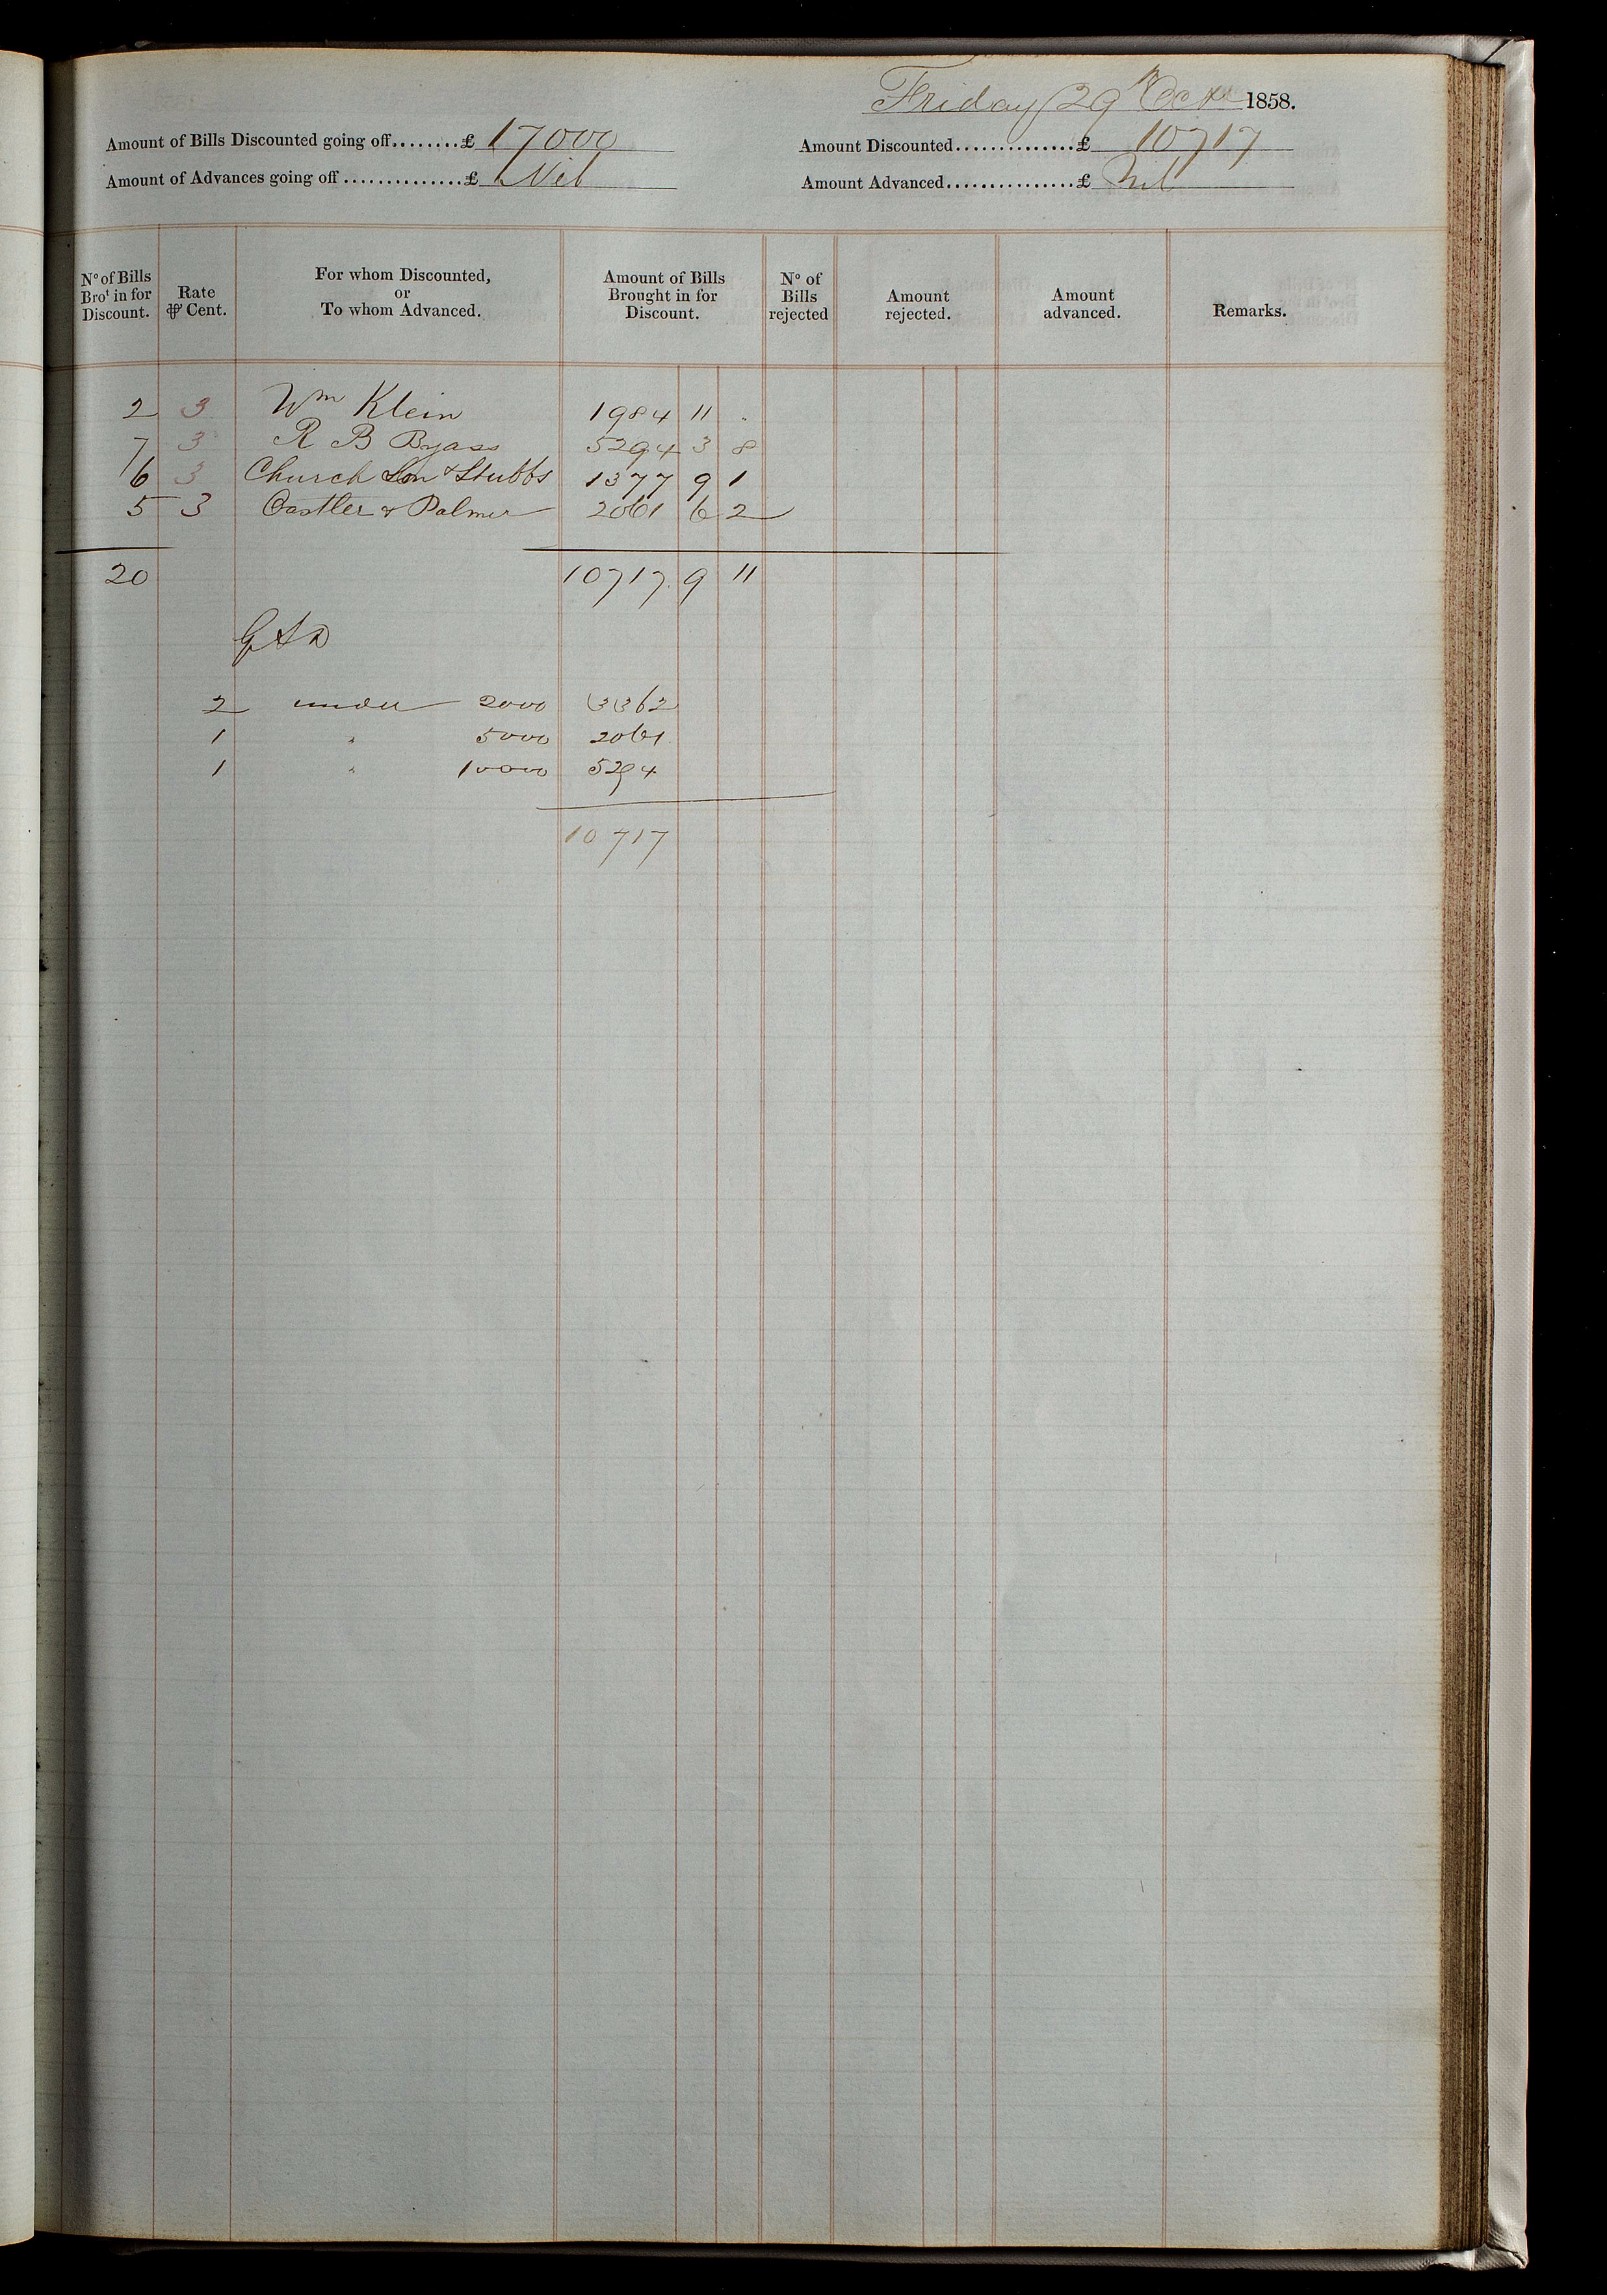 Friday 29th Octr 1858.
Amount of Bills Discounted going off........£ 17000
Amount Discounted..............£ 10717
Amount of Advances going off..............£ Nil
Amount Advanced...............£ Nil
No of Bills Brot in for Discount.
Rate ⅌ Cent.
For whom Discounted, or To whom Advanced.
Amount of Bills Brought in for Discount.
No of Bills rejected
Amount rejected.
Amount advanced.
Remarks.
2 3 Wm Klein 1984 11 "
7 3 R B Byass 5294 3 8
6 3 Church Son & Stubbs 1377 9 1
5 3 Castler & Palmer 2061 6 2
20 10717 9 11
2 under 2000 3362
1 " 5000 2061
1 " 10000 5294
10717